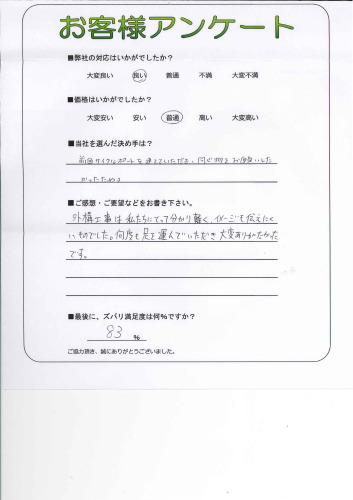 お客様アンケート
■弊社の対応はいかがでしたか?
大変良い 良い 普通 不満 大変不満
■価格はいかがでしたか?
大変安い 安い 普通 高い 大変高い
■当社を選んだ決め手は?
前回サイクルポートを建てていただき、同じ物をお願いした
かったため。
■ご感想・ご要望などをお書き下さい。
外構工事は私たちにとって分かり難く、イメージも伝えにく
いものでした。何度も足を運んでいただき大変ありがたかった
です。
■最後に、ズバリ満足度は何%ですか?
83 %
ご協力頂き、誠にありがとうございました。